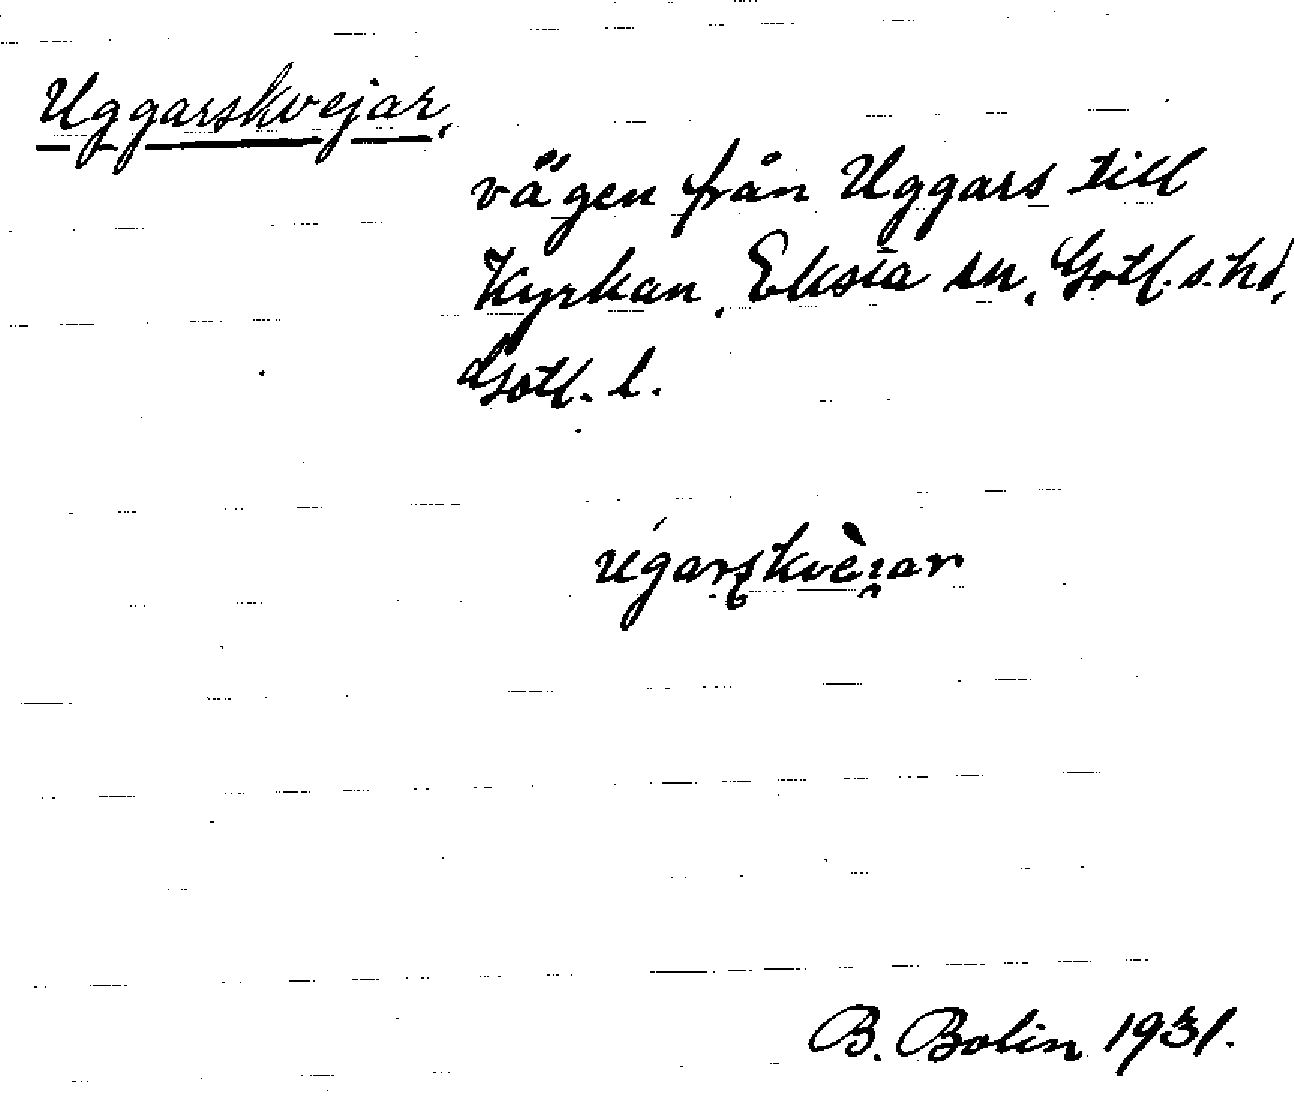 Uggarskvejar,
vägen från Uggars till
Kyrkan, Eksta sn, Gotl. s. hd,
Gotl. l.
úgarskvèi̯ar
B. Bolin 1931.